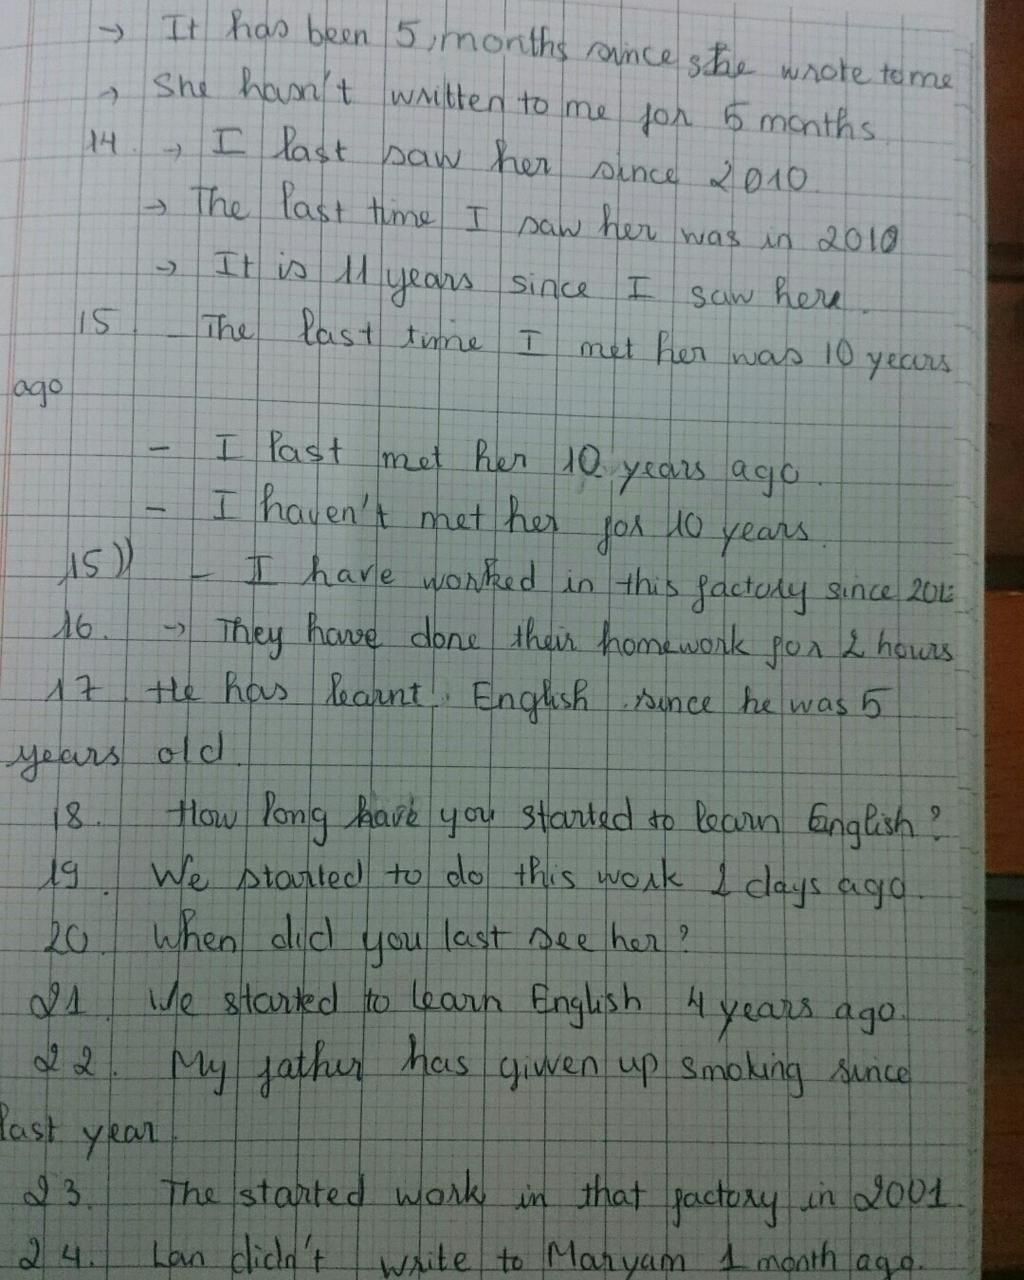 → It has been 5 months since she wrote to me
→ She hasn't written to me for 5 months
14 → I last saw her since 2010
→ The last time I saw her was in 2010
→ It is 11 years since I saw here.
15 - The last time I met her was 10 years
ago
- I last met her 10 years ago.
- I haven't met her for 10 years.
15)) - I have worked in this factory since
16. → They have done their homework for 2 hours
17 He has learnt English since he was 5
years old.
18. How long have you started to learn English?
19. We started to do this work 2 days ago.
20. When did you last see her?
21. We started to learn English 4 years ago.
22. My father has givven up smoking since
last year.
23. The started work in that factory in 2001.
24. Lan didn't write to Maryam 1 month ago.